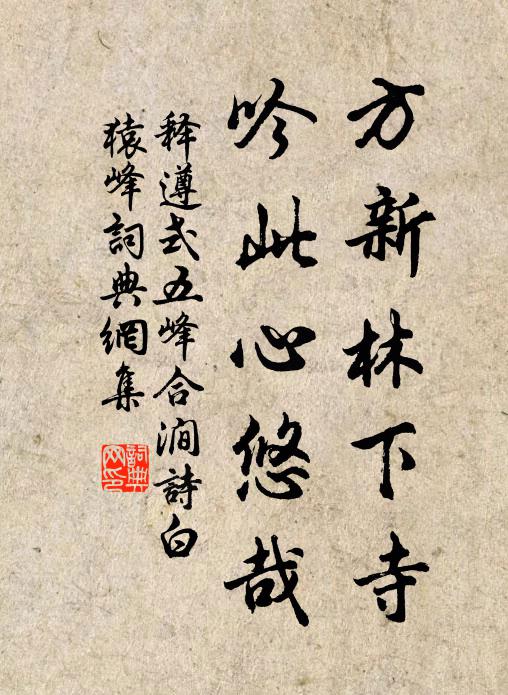 方新林下寺
吟此心悠哉
释遵式五峰合涧詩白
猿峰詞典網集
詞典网印